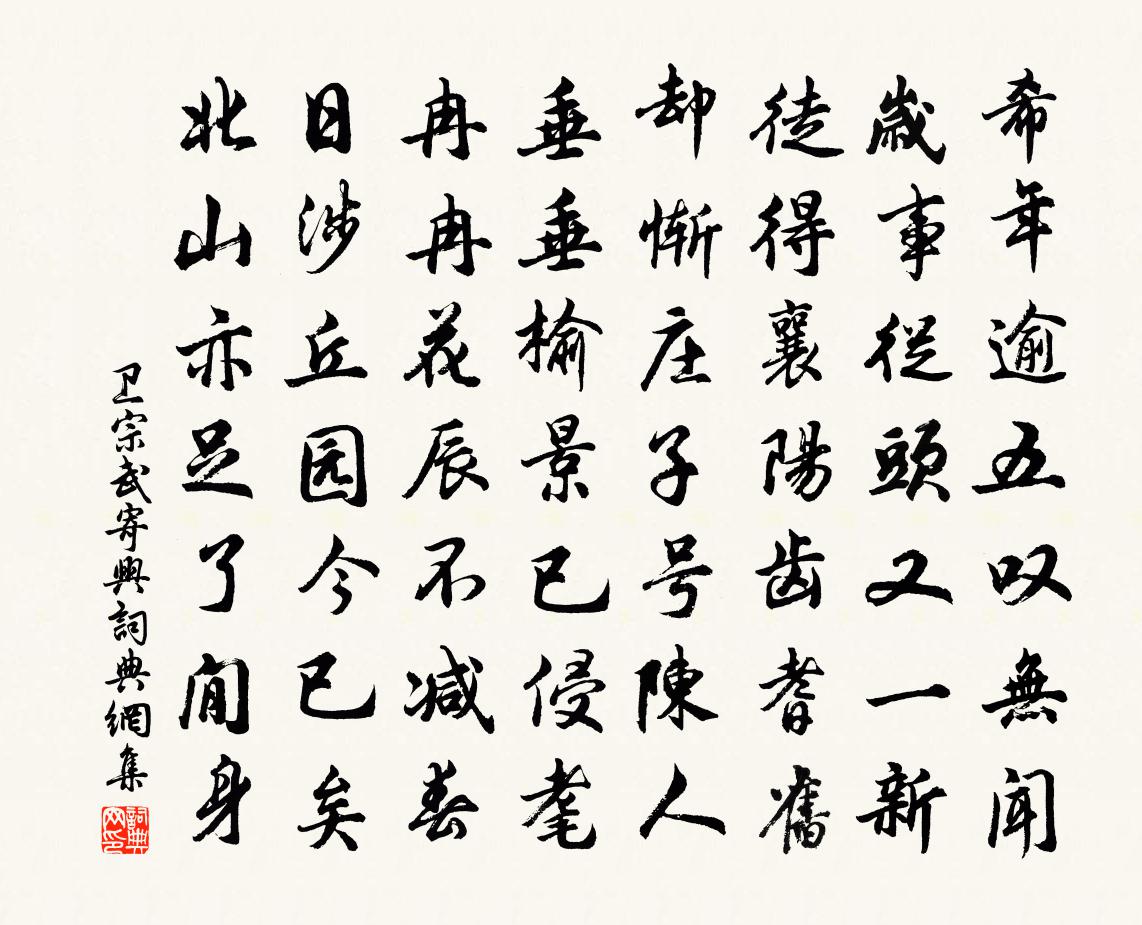 希年逾五叹無聞
歲事從頭又一新
徒得襄陽齿耆舊
却慚庄子号陳人
垂垂榆景已侵耄
冉冉花辰不减春
日涉丘园今已矣
北山亦足了閒身
卫宗武寄興詞典網集
詞典网印